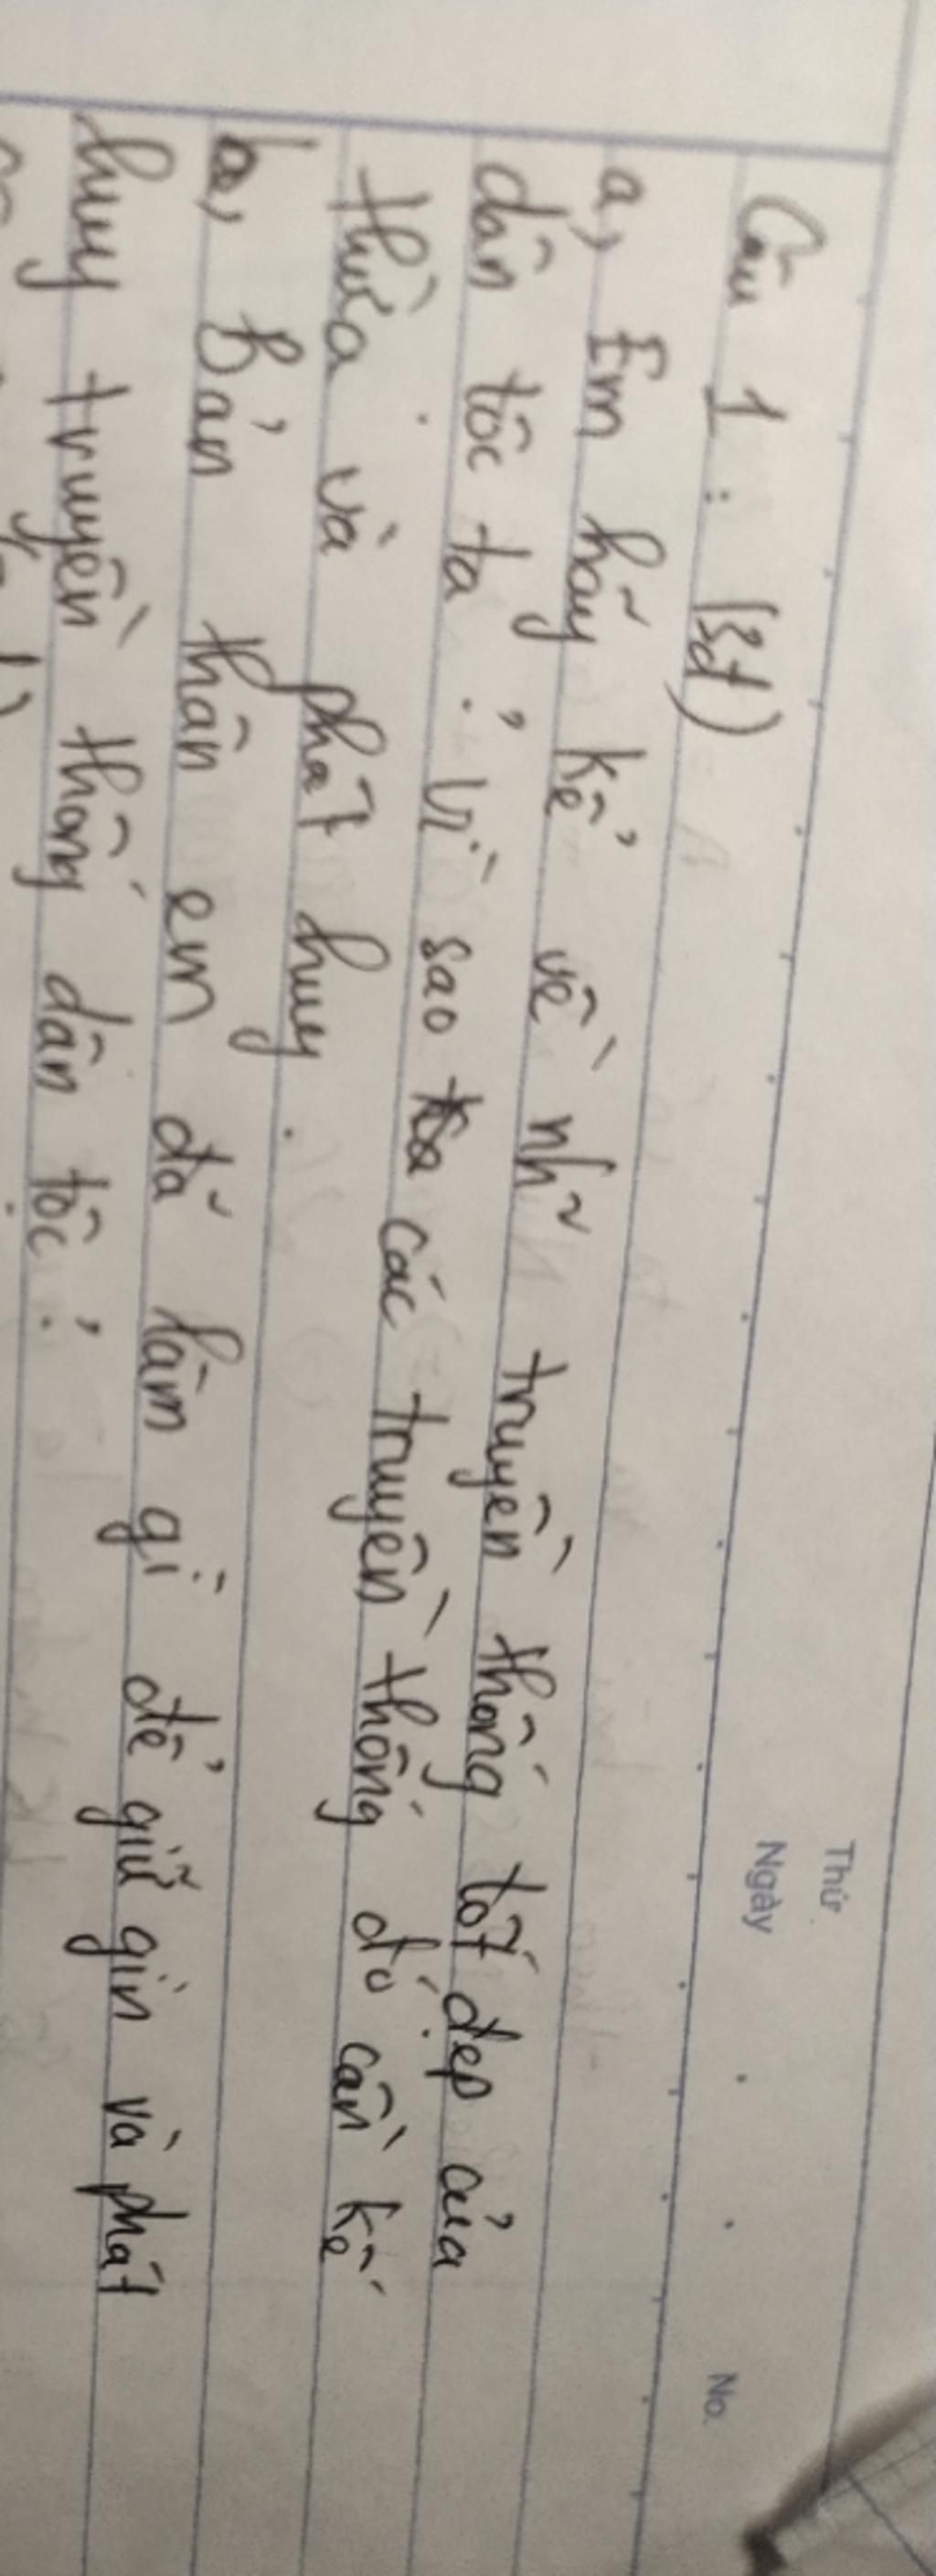 Thứ
Ngày
No.
Câu 1: (3đ)
a, Em hãy kể về nh~ truyền thống tốt đẹp của
dân tộc ta? Vì sao các truyền thống đó cần kế
thừa và phát huy.
b, Bản thân em đã làm gì để giữ gìn và phát
huy truyền thống dân tộc?